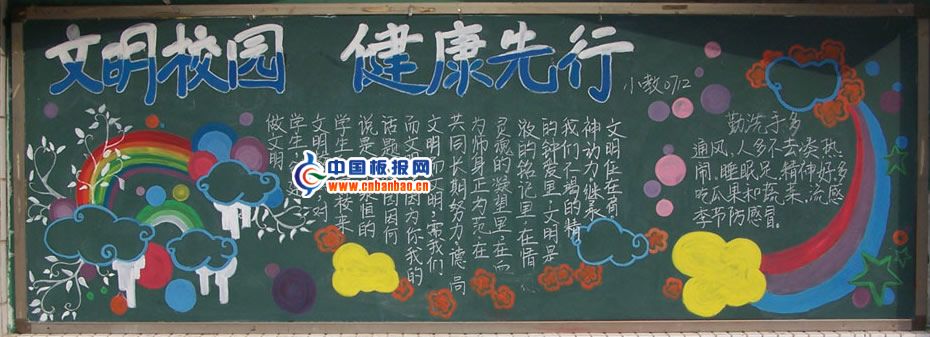 文明校园 健康先行
小教0712
文明住在肩
神动力继承
我们不竭的精
的钟爱里,文明是
液的铭记里,在情
灵魂的凝望里在血
为师身正为范在
共同长期努力,德高
文明而文明,需我们
而文明因为你我的
话题文明因何
说是个永恒的
学生
文明
学生
做文明
勤洗手多
通风,人多不去凑热
闹,睡眠足,精神好,多
吃瓜果和蔬菜,流感
季节防感冒。
中国板报网
www.cnbanbao.cn